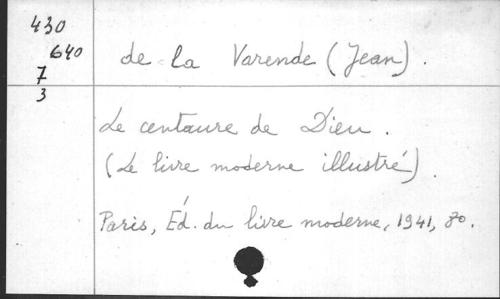 430
640
7
3
de la Varende (Jean).
Le centaure de Dieu.
(Le livre moderne illustré).
Paris, Éd. du livre moderne, 1941, 8o.